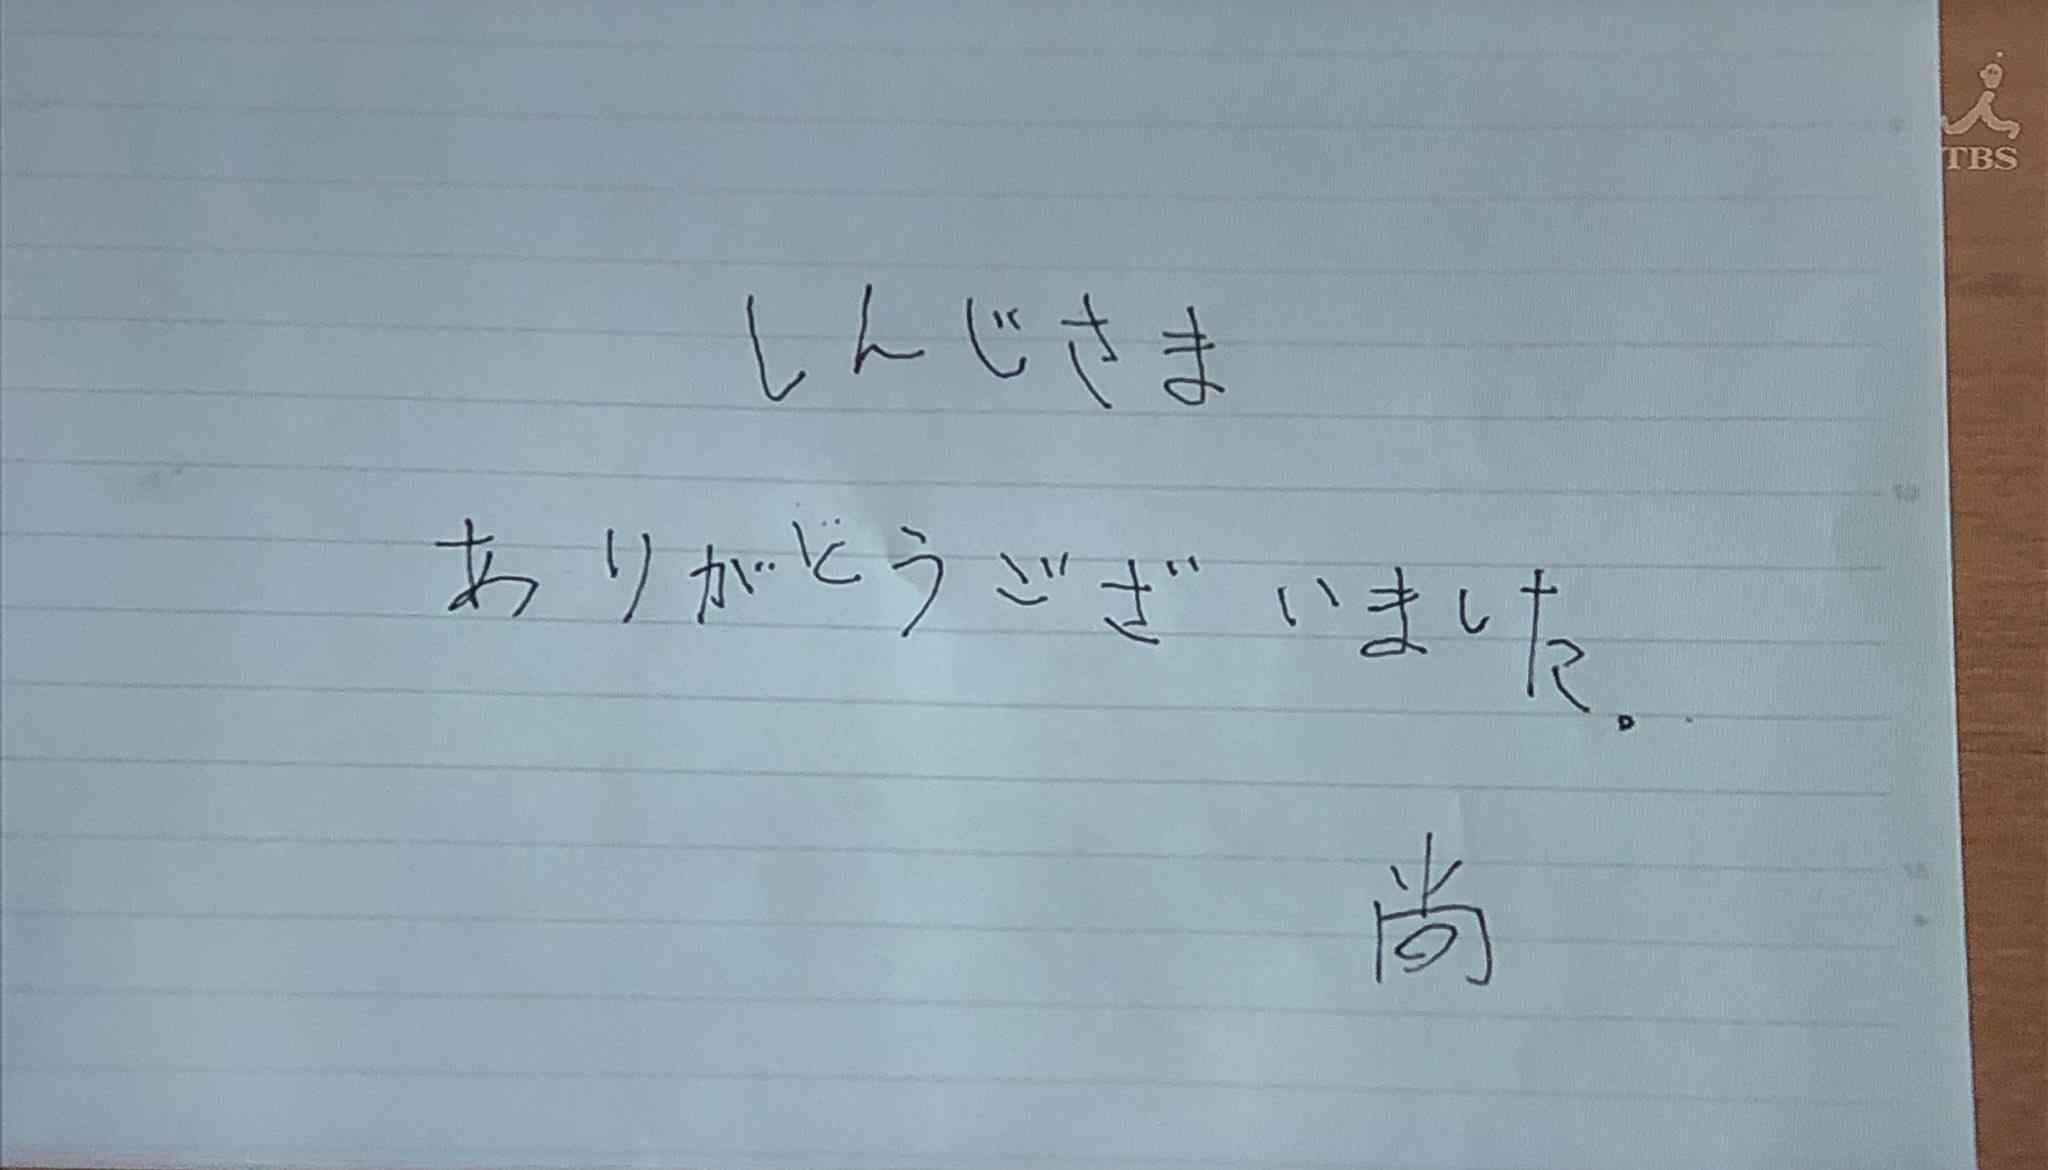 TBS
しんじさま
ありがとうございました。
尚